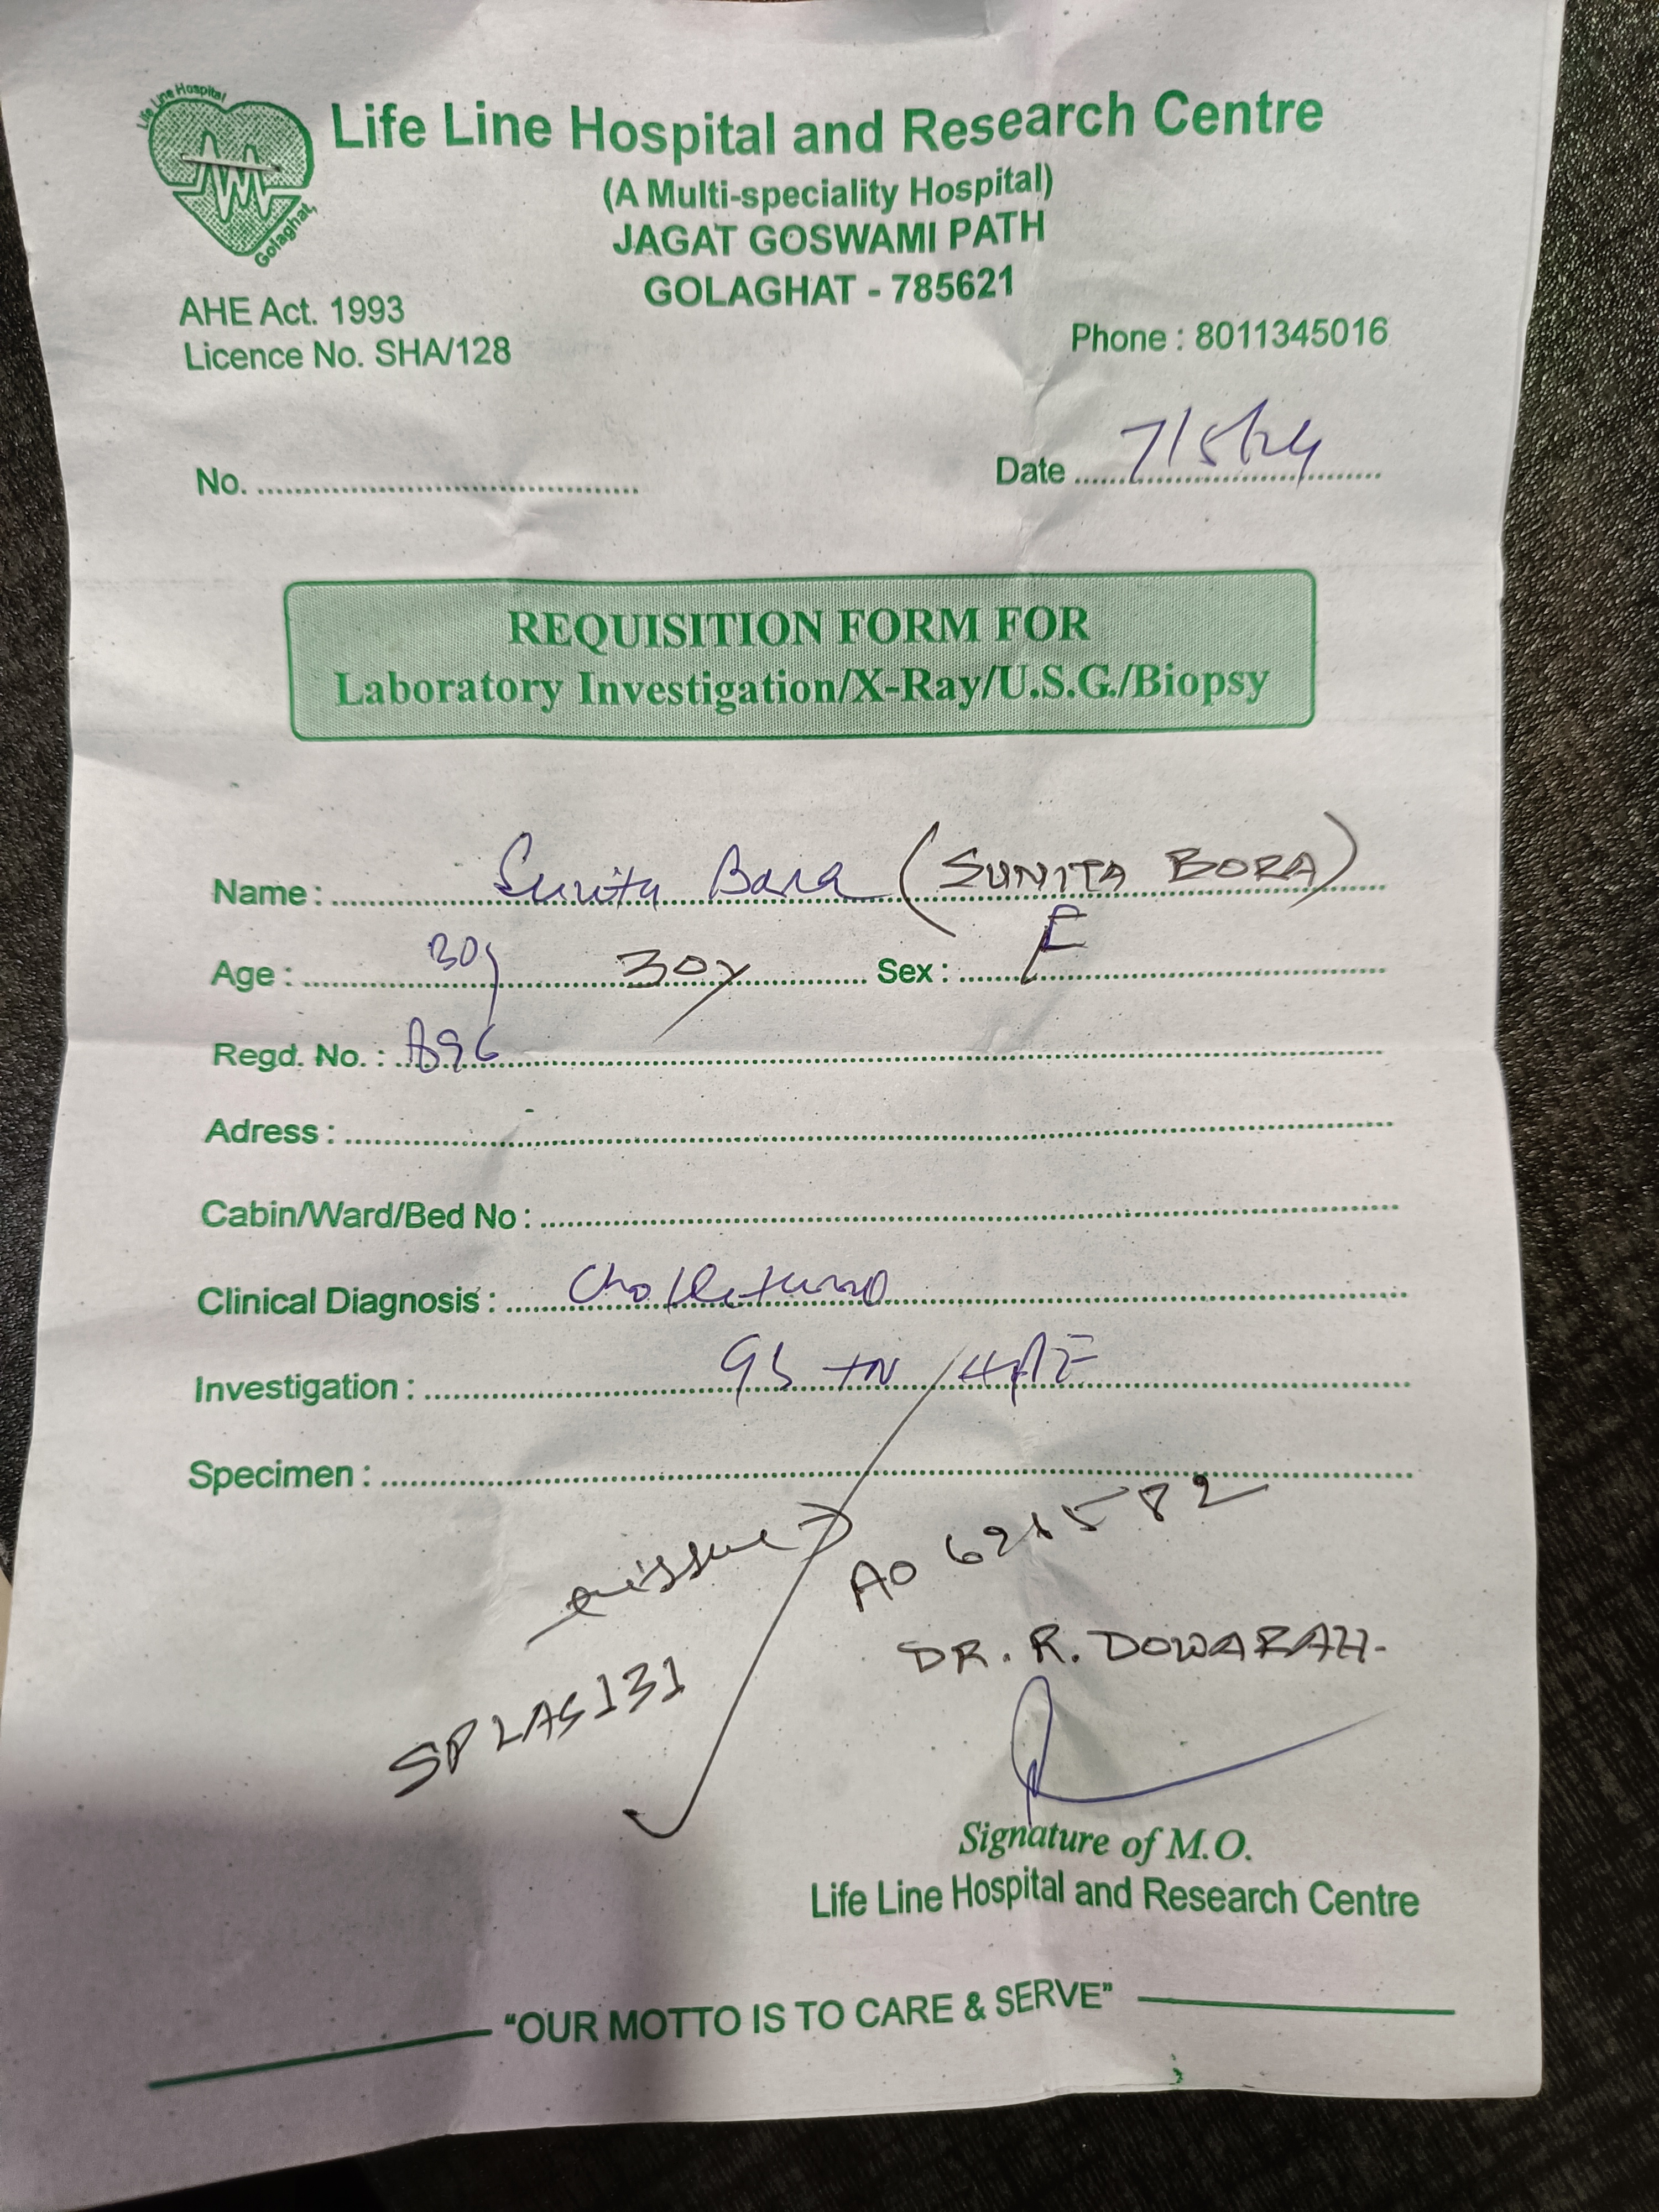 Life Line Hospital
Golaghat,
Life Line Hospital and Research Centre
(A Multi-speciality Hospital)
JAGAT GOSWAMI PATH
GOLAGHAT - 785621
AHE Act. 1993
Licence No. SHA/128
Phone : 8011345016
No.
Date 7/5/24
REQUISITION FORM FOR
Laboratory Investigation/X-Ray/U.S.G./Biopsy
Name : Sunita Bora (SUNITA BORA)
Age : 30y 30y Sex : F
Regd. No. : A96
Adress :
Cabin/Ward/Bed No :
Clinical Diagnosis :
Investigation :
Specimen :
DR. R. DOWARAH
Signature of M.O.
Life Line Hospital and Research Centre
"OUR MOTTO IS TO CARE & SERVE"